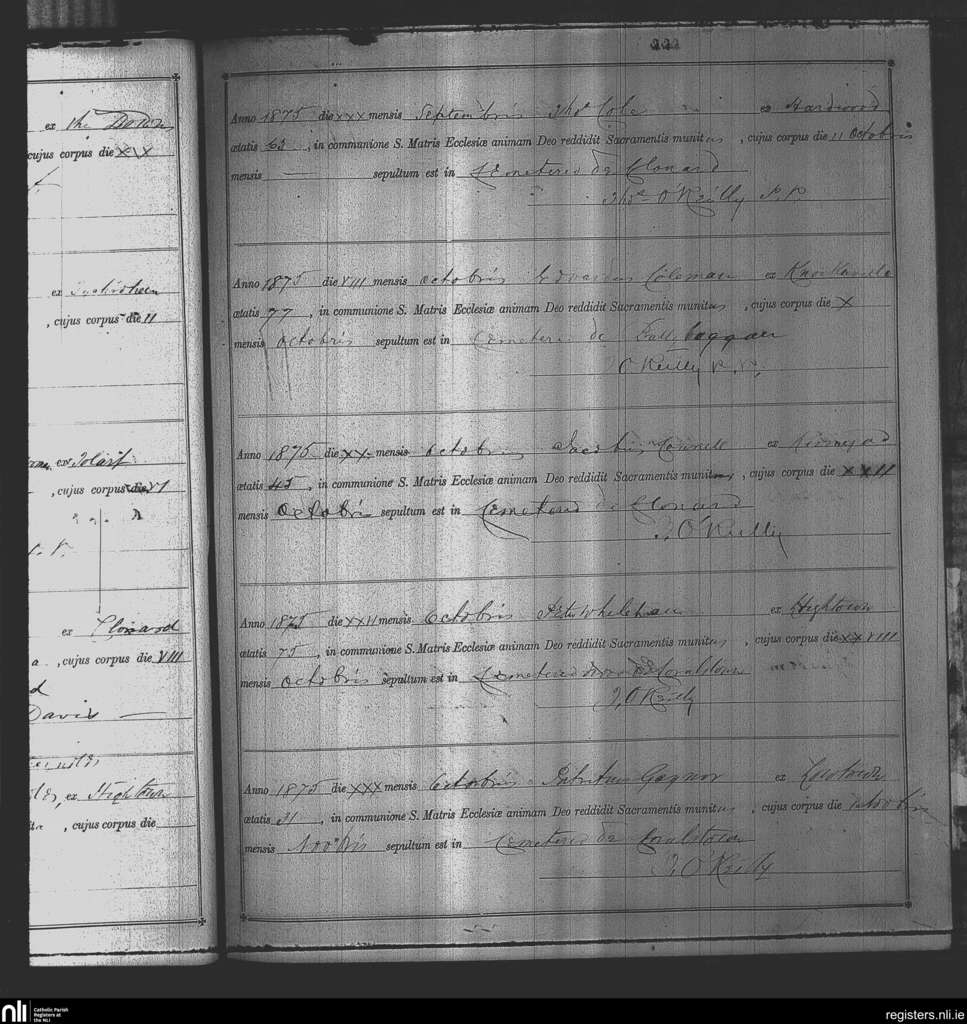 ex the
cujus corpus die X\X
ex
, cujus corpus die 11
ex
, cujus corpus die VI
P. P.
ex Clonard
, cujus corpus die VIII
Davis
, ex Hightown
, cujus corpus die
222
Anno 1875 die XXX mensis Septembris Thos Cole ex Hardwood
ætatis 63, in communione S. Matris Ecclesiæ animam Deo reddidit Sacramentis munitus, cujus corpus die 11 Octobris
mensis — sepultum est in Cemeterio de Clonard
Thos O'Reilly P. P.
Anno 1875 die VIII mensis Octobris Edvardus Coleman ex
ætatis 77, in communione S. Matris Ecclesiæ animam Deo reddidit Sacramentis munitus, cujus corpus die X
mensis Octobris sepultum est in Cemeteri de Ballyboggan
O'Reilly P. P.
Anno 1875 die XX mensis Octobris Jacobus Connell ex
ætatis 45, in communione S. Matris Ecclesiæ animam Deo reddidit Sacramentis munitus, cujus corpus die XXII
mensis Octobris sepultum est in Cemeterio de Clonard
T. O'Reilly
Anno 1875 die XXVI mensis Octobris Peter Whelehan ex Hightown
ætatis 75, in communione S. Matris Ecclesiæ animam Deo reddidit Sacramentis munitus, cujus corpus die XXVIII
mensis Octobris sepultum est in Cemeterio de Coralstown
T. O'Reilly
Anno 1875 die XXX mensis Octobris Gaynor ex
ætatis 21, in communione S. Matris Ecclesiæ animam Deo reddidit Sacramentis munitus, cujus corpus die 1 Novbris
mensis Novbris sepultum est in Cemeterio de Coralstown
T. O'Reilly
nli Catholic Parish Registers at the NLI
registers.nli.ie